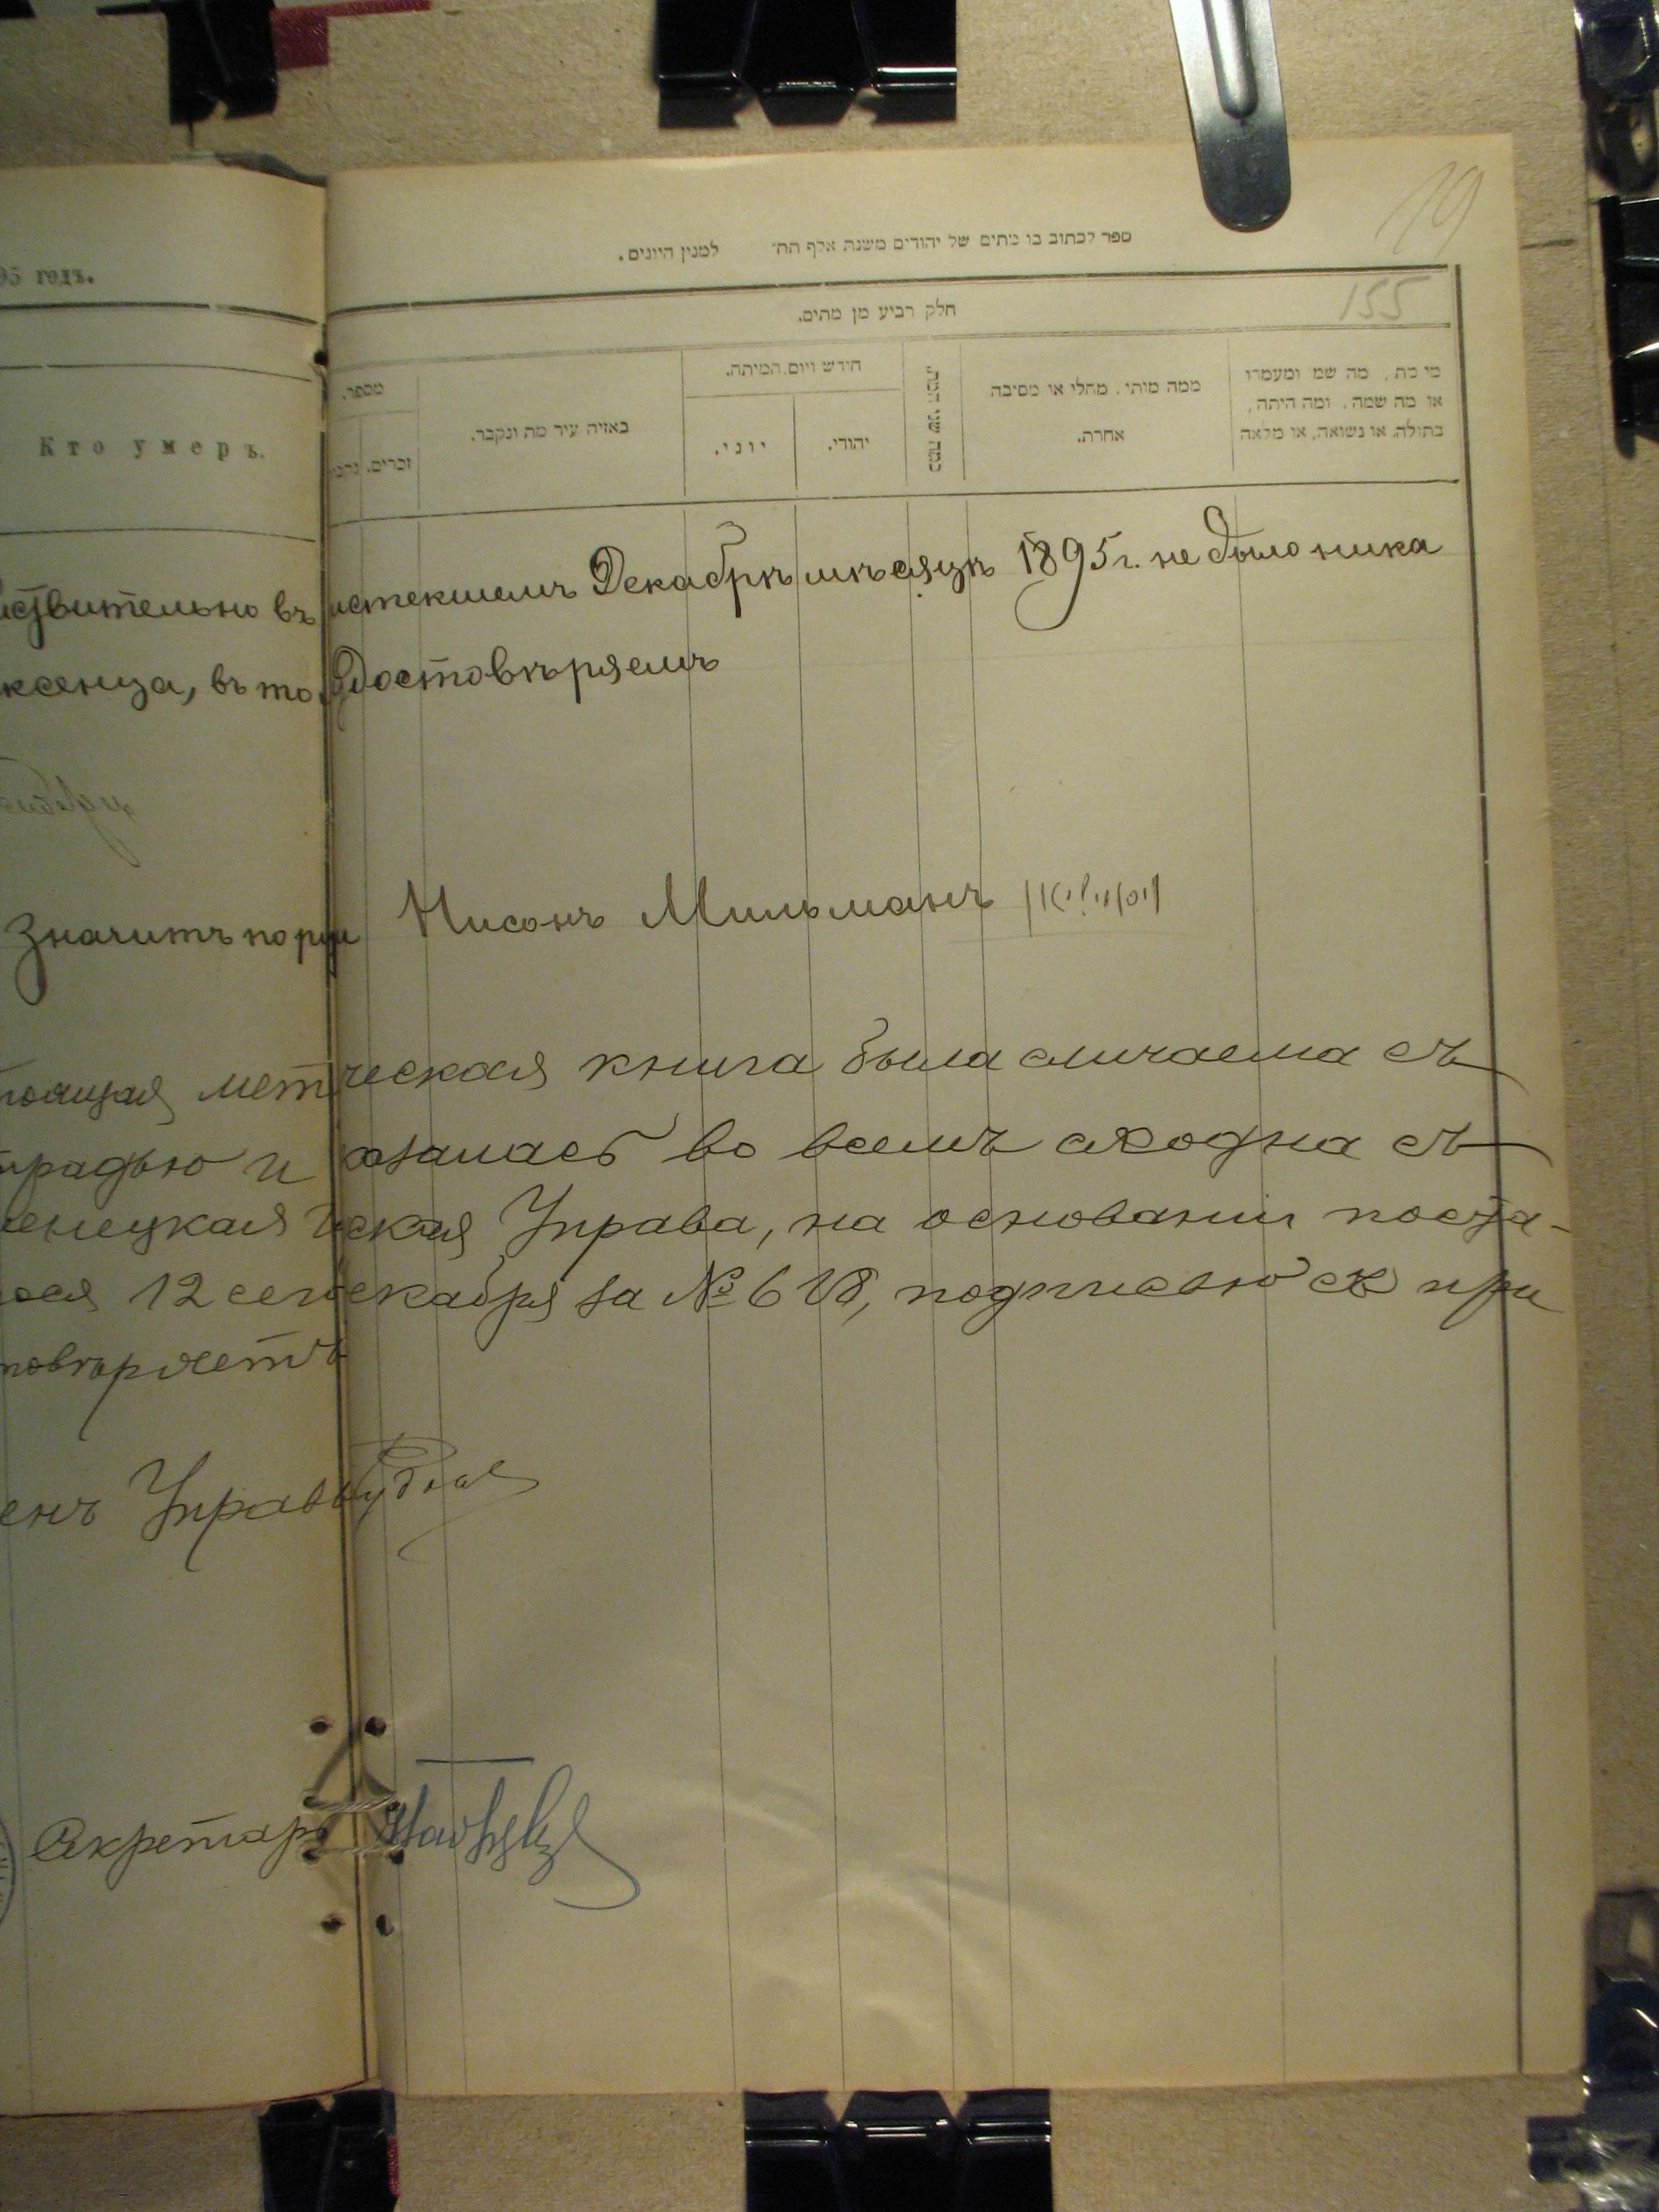 19
ספר לכתוב בו מתים של יהודים משנת אלף תת״ למנין היונים.
95 годъ.
155
חלק רביע מן מתים.
מי מת, מה שמו ומעמדו
או מה שמה, ומה היתה,
בתולה, או נשואה, או מלאה
ממה מותו, מחלי או מסיבה
אחרת.
כמה שני המת.
חודש ויום המיתה.
יהודי.
יוני.
באיזה עיר מת ונקבר.
מספר.
זכרים.
Кто умеръ.
ствительно въ истекшемъ Декабрѣ мѣсяцѣ 1895 г. не было ника
въ то достовѣряемъ
Значитъ по
Нисонъ Мильманъ
тоящая мет ческая книга была сличаема съ
традью и оказалась во всемъ сходна съ
ская Управа, на основаніи поста-
12 се декабря за № 618, подписью съ при
товѣряетъ
енъ Управы
Секретарь